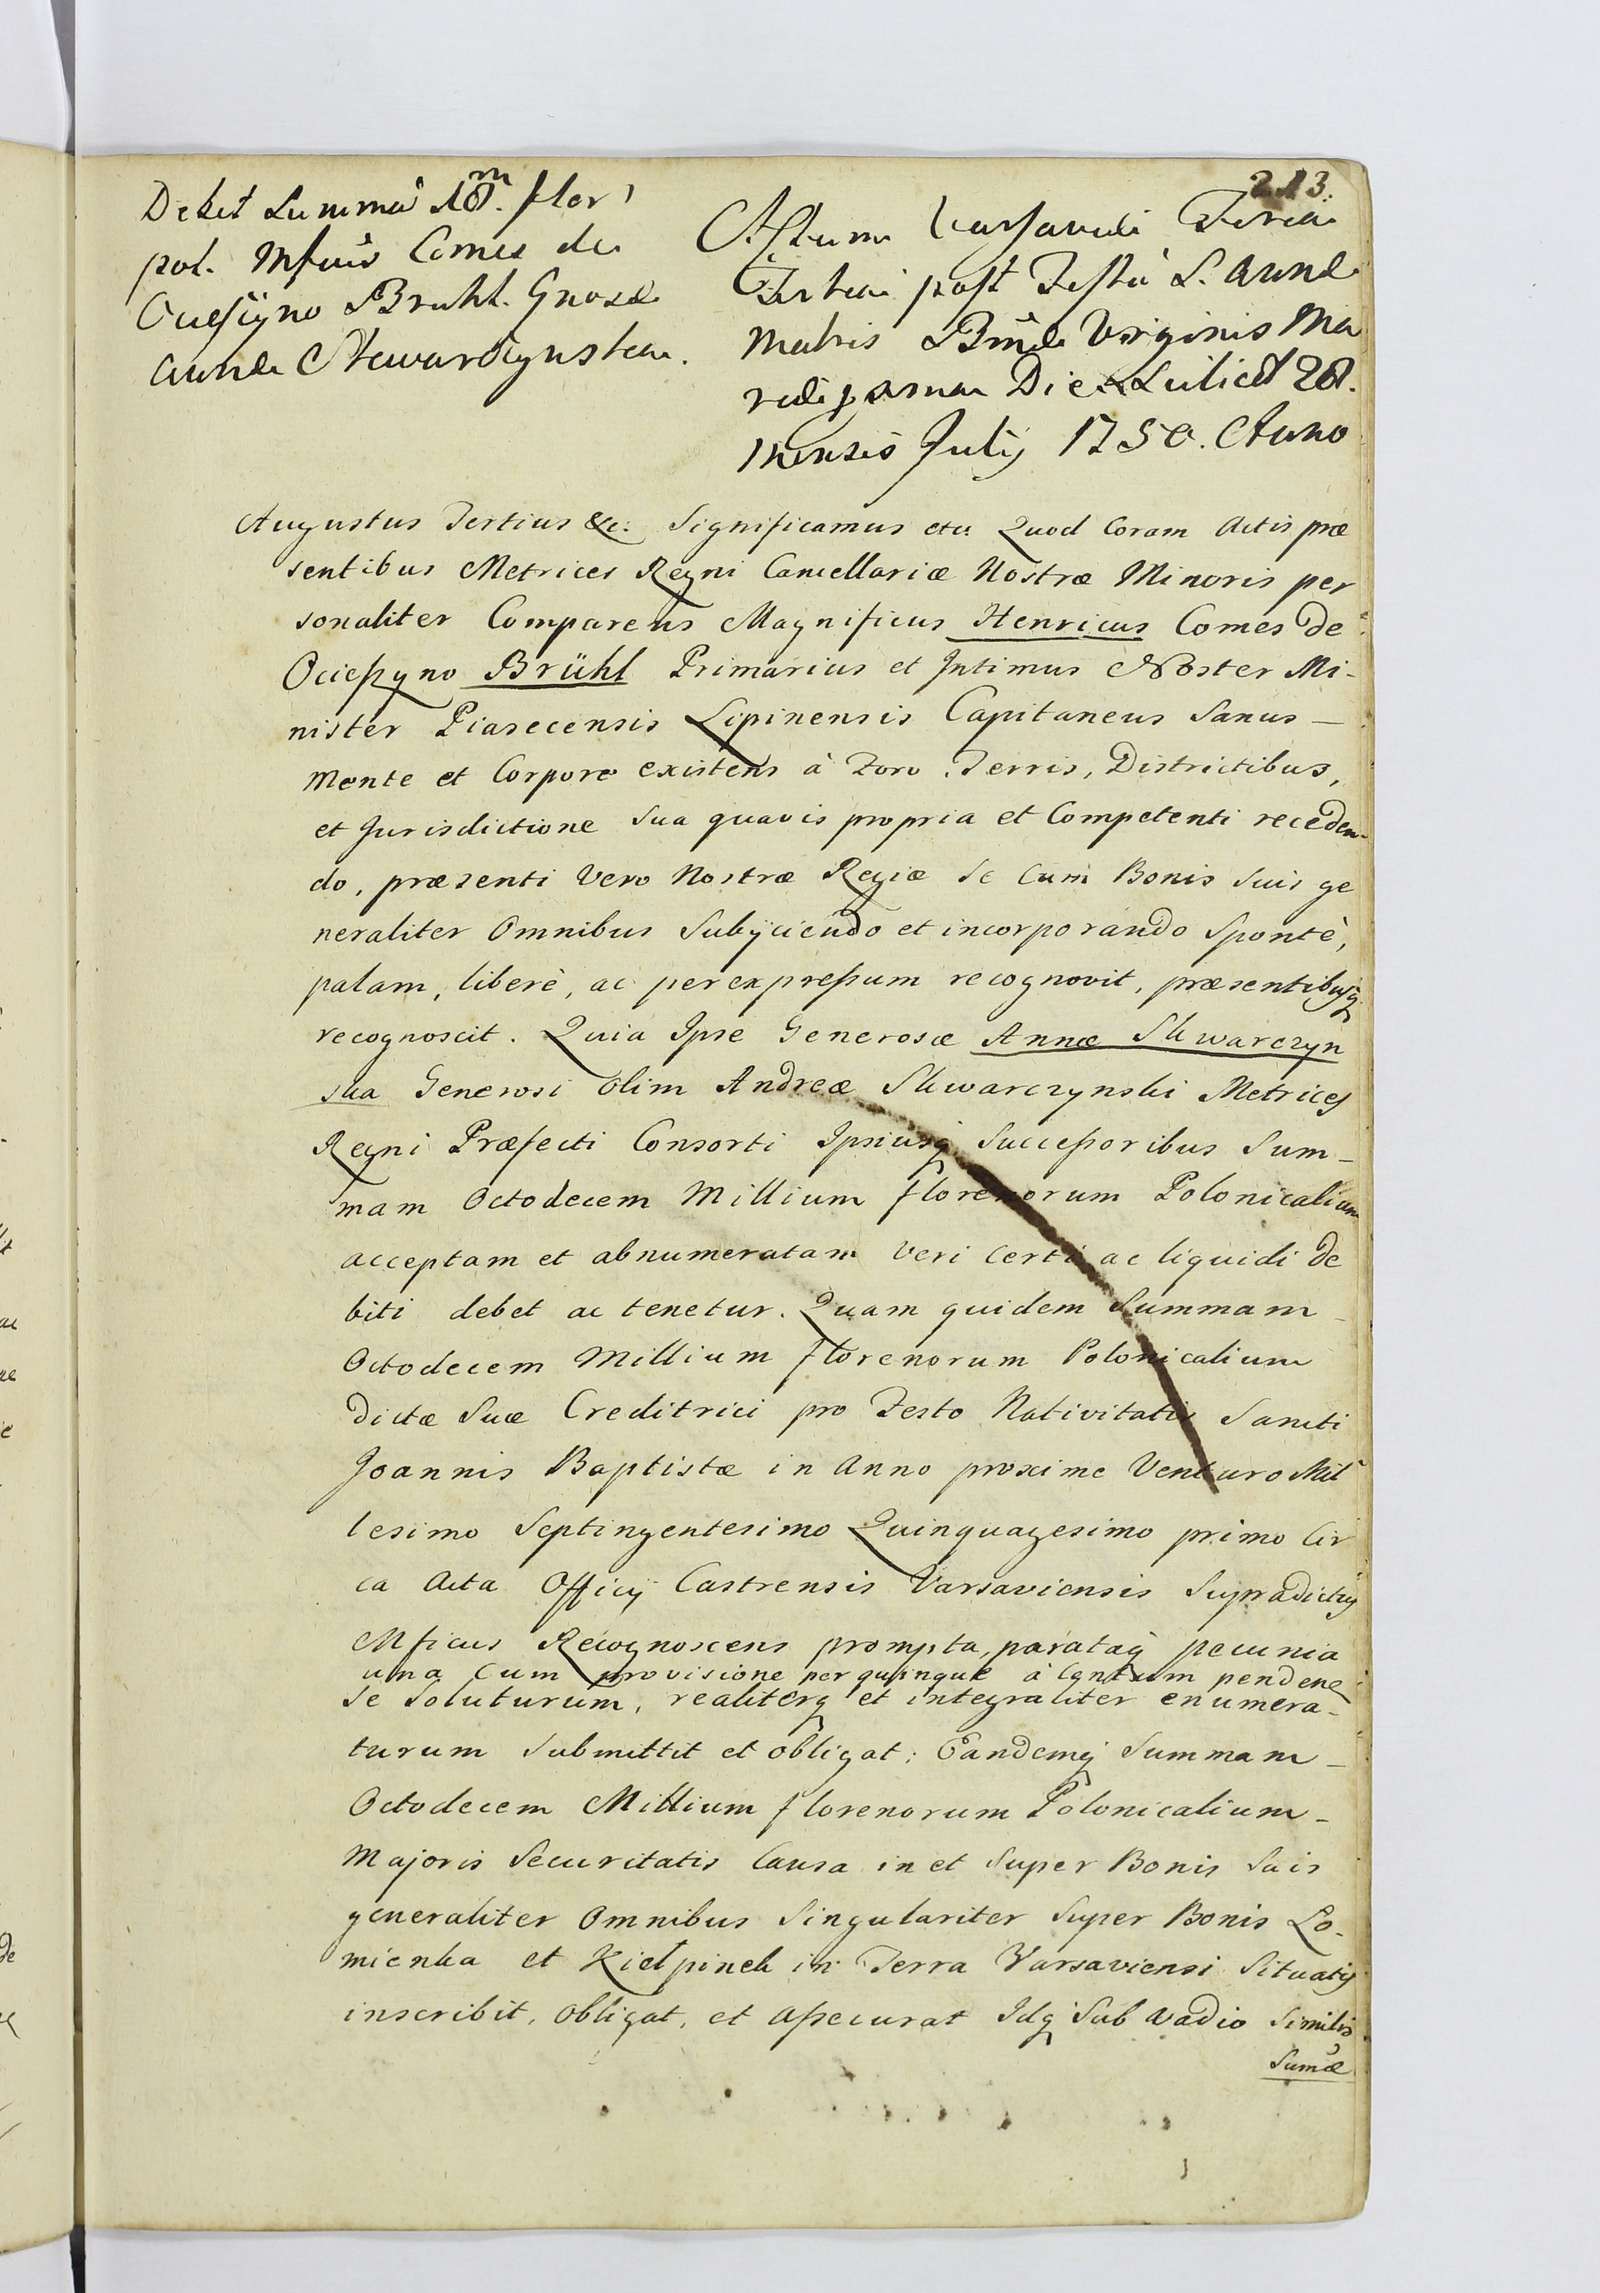 213.
Debet Summã 18.m flor
pol. Mficus Comes de
Ocieszyno Brühl. Gnosæ
Annæ Skwarczynska.
Actum Varsaviæ Feria
Tertia post Festũ S. Annæ
Matris Bmæ Virginis Ma
riæ Die Scilicet 28.
Mensis Julij 1750. Anno
Augustus Tertius &c. Significamus etc. Quod Coram Actis præ
sentibus Metrices Regni Cancellariæ Nostræ Minoris per
sonaliter Comparens Magnificus Henricus Comes de
Ocieszyno Brühl Primarius et Intimus Noster Mi-
nister Piasecensis Lipinensis Capitaneus Sanus –
Mente et Corpore existens à Foro, Terris, Districtibus,
et Jurisdictione Sua quavis propria et Competenti receden-
do, præsenti Vero Nostræ Regiæ Se Cum Bonis Suis ge
neraliter Omnibus Subijciendo et incorporando Spontè,
palam, liberè, ac per expressum recognovit, præsentibusq
recognoscit. Quia Ipse Generosæ Annæ Skwarczyn
ska Generosi olim Andreæ Skwarczynski Metrices
Regni Præfecti Consorti Ipsiusq Successoribus Sum-
mam Octodecem Millium florenorum Polonicalium
acceptam et abnumeratam Veri Certi ac liquidi De
biti debet ac tenetur. Quam quidem Summam
Octodecem Millium florenorum Polonicalium
dictæ Suæ Creditrici pro Festo Nativitatis Sancti
Joannis Baptistæ in Anno proxime Venturo Mil
lesimo Septingentesimo Quinquagesimo primo Cir
ca Acta Officij Castrensis Varsaviensis Supradictus
Mficus Recognoscens prompta, parataq pecunia
una Cum provisione per quinque à Centum pendene
Se Soluturum, realiterq et integraliter enumera-
turum Submittit et obligat; Eandemq Summam –
Octodecem Millium florenorum Polonicalium –
Majoris Securitatis Causa in et Super Bonis Suis
generaliter Omnibus Singulariter Super Bonis Lo-
mienka et Kiełpinek in Terra Varsaviensi Situatis
inscribit, obligat, et assecurat Idq Sub Vadio Similis
Sumæ